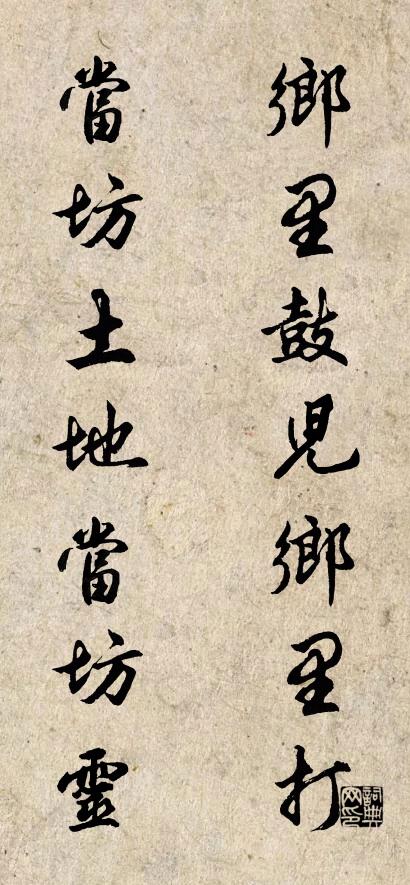 鄉里鼓兒鄉里打
當坊土地當坊靈
詞典網印